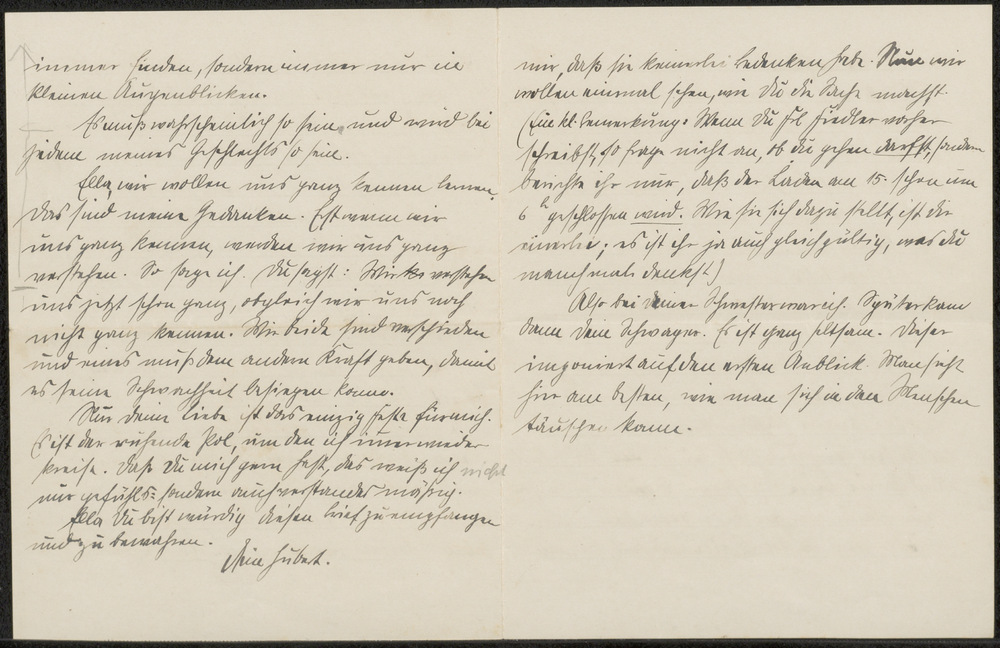 immer finden, sondern immer nur in
kleinen Augenblicken.
Es muß wahrscheinlich so sein, und wird bei
jedem meines Geschlechts so sein.
Ella, wir wollen uns ganz kennen lernen
das sind meine Gedanken. Erst wenn wir
uns ganz kennen, werden wir uns ganz
verstehen. So sage ich. Du sagst: Wir verstehn
uns jetzt schon ganz, obgleich wir uns noch
nicht ganz kennen. Wir beide sind verschieden
und eines muß dem andern Kraft geben, damit
es seine Schwachheit besiegen kann.
Nur deine Liebe ist das einzig feste für mich.
Es ist der ruhende Pol, um den ich immer wieder
kreise. Daß Du mich gern hast, das weiß ich nicht
nur gefühls= sondern auch verstandesmäßig.
Ella Du bist würdig diesen Brief zu empfangen
und zu bewahren.
Dein Hubert.
mir, daß sie keinerlei Bedenken habe. Nun wir
wollen einmal sehen, wie Du die Sache machst.
(Eine kl. Bemerkung: Wenn Du Frl. Fiedler vorher
schreibst, so frage nicht an, ob du gehen darfst, sondern
berichte ihr nur, daß der Laden am 15. schon um
6 h geschlossen wird. Wie sie sich dazu stellt, ist dir
einerlei; es ist ihr ja auch gleichgültig, was du
manchmal denkst)
Also bei deiner Schwester war ich. Später kam
dann dein Schwager. Es ist ganz seltsam. Dieser
imponiert auf den ersten Anblick. Man sieht
hier am besten, wie man sich in den Menschen
täuschen kann.